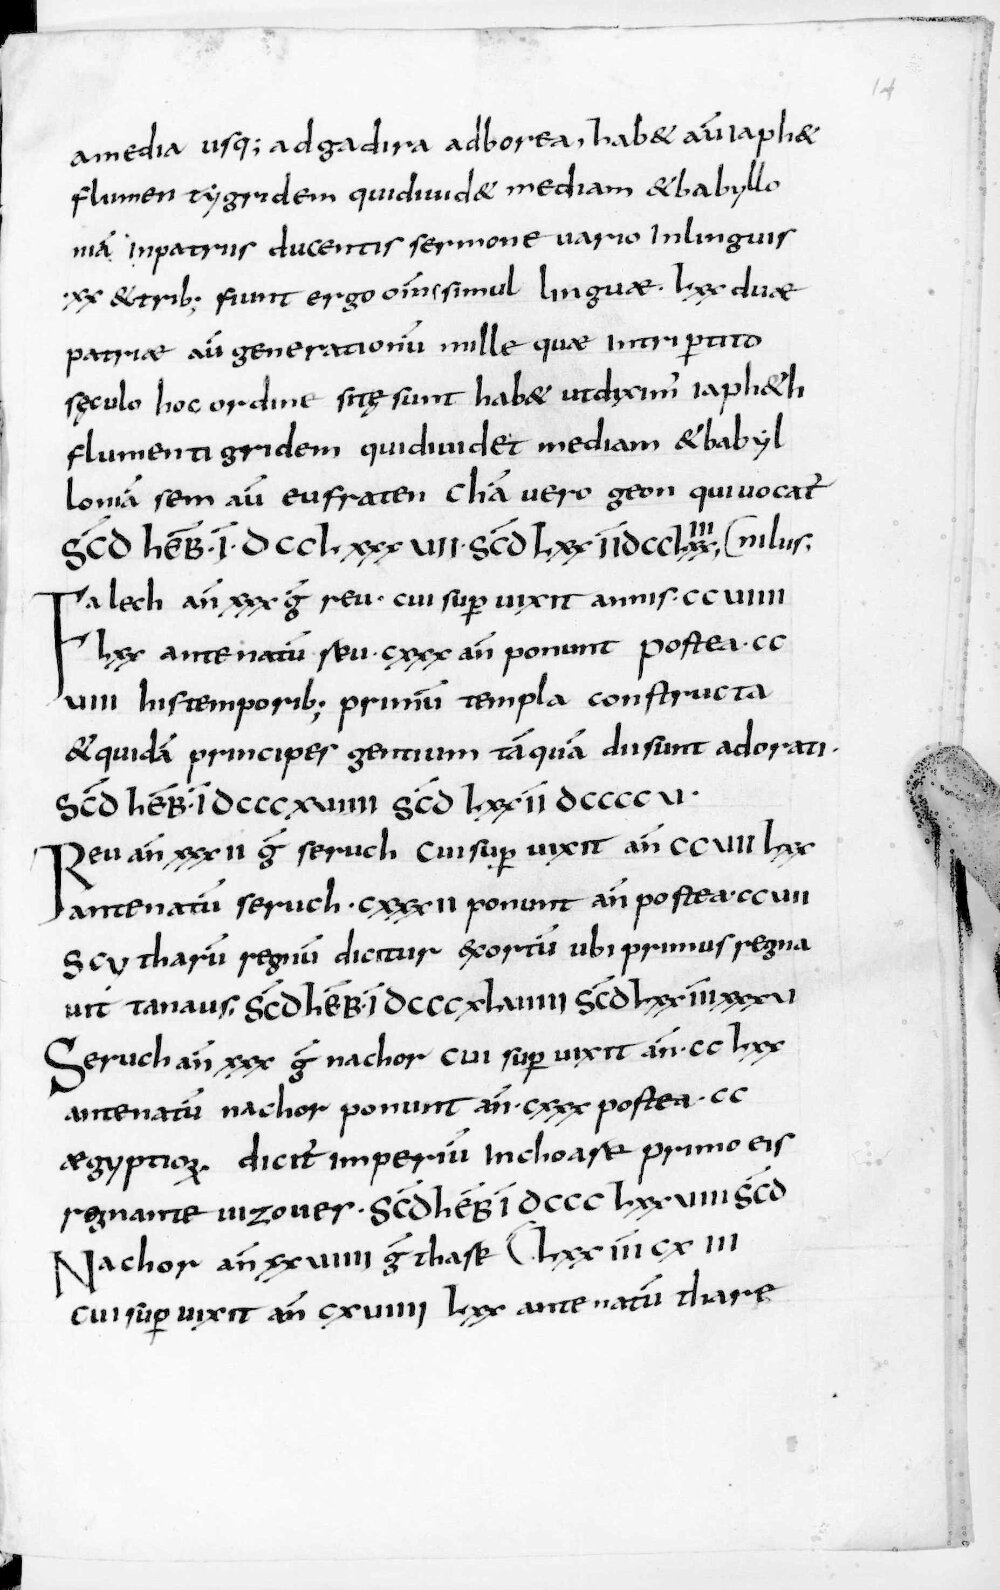 14
amedia usq; adgadira adborea, hab& aūiaph&
flumen tygridem quidiuid& mediam &babyllo
niā inpatriis ducentis sermone uario Inlinguis
·xx &trib; fiunt ergo om̄s simul linguæ· lxx duæ
patriæ aū generationū mille quæ Intripertito
sęculo hoc ordine sitę sunt hab& utdixim̄ iaph&h
flumentigridem quidiuidet mediam &babyl
loniā sem aū eufraten Chā uero geon quiuocat̄
SC̄D hEB̄·Ī·DCCLxxxVII· SC̄D Lxx IĪDCCLxxIII, (nilus;
Falech an̄ xxx ḡ reu· cui sup uixit annis·CCVIIII
Lxx ante natū reu·cxxx an̄ ponunt postea·CC
VIIII histemporib; primū templa constructa
&quidā principes gentium tāquā dii sunt adorati·
SC̄D hEB̄·Ī DCCCxVIIII SC̄D Lxx·IĪ DCCCCVI·
Reu an̄ xxxII ḡ seruch cui sup uixit an̄ CCVII Lxx
antenatū seruch·cxxxII ponunt an̄ postea·CCVII
Scytharū regnū dicitur exortū ubi primus regna
uit tanaus; SC̄D hEB̄·Ī DCCCxLVIIII SC̄D Lxx IIĪ xxxVI
Seruch an̄ xxx ḡ nachor cui sup uixit an̄·CC Lxx
antenatū nachor ponunt an̄·cxxx postea·CC
ægyptioꝝ dicit̄ imperiū Inchoasse primo eis
regnante uizoues· SC̄D hEB̄ Ī DCCC LxxVIIII SC̄D
Nachor an̄ xxVIIII ḡ thare (Lxx IIĪ Cx III
cui sup uixit an̄ CxVIIII Lxx ante natū thare